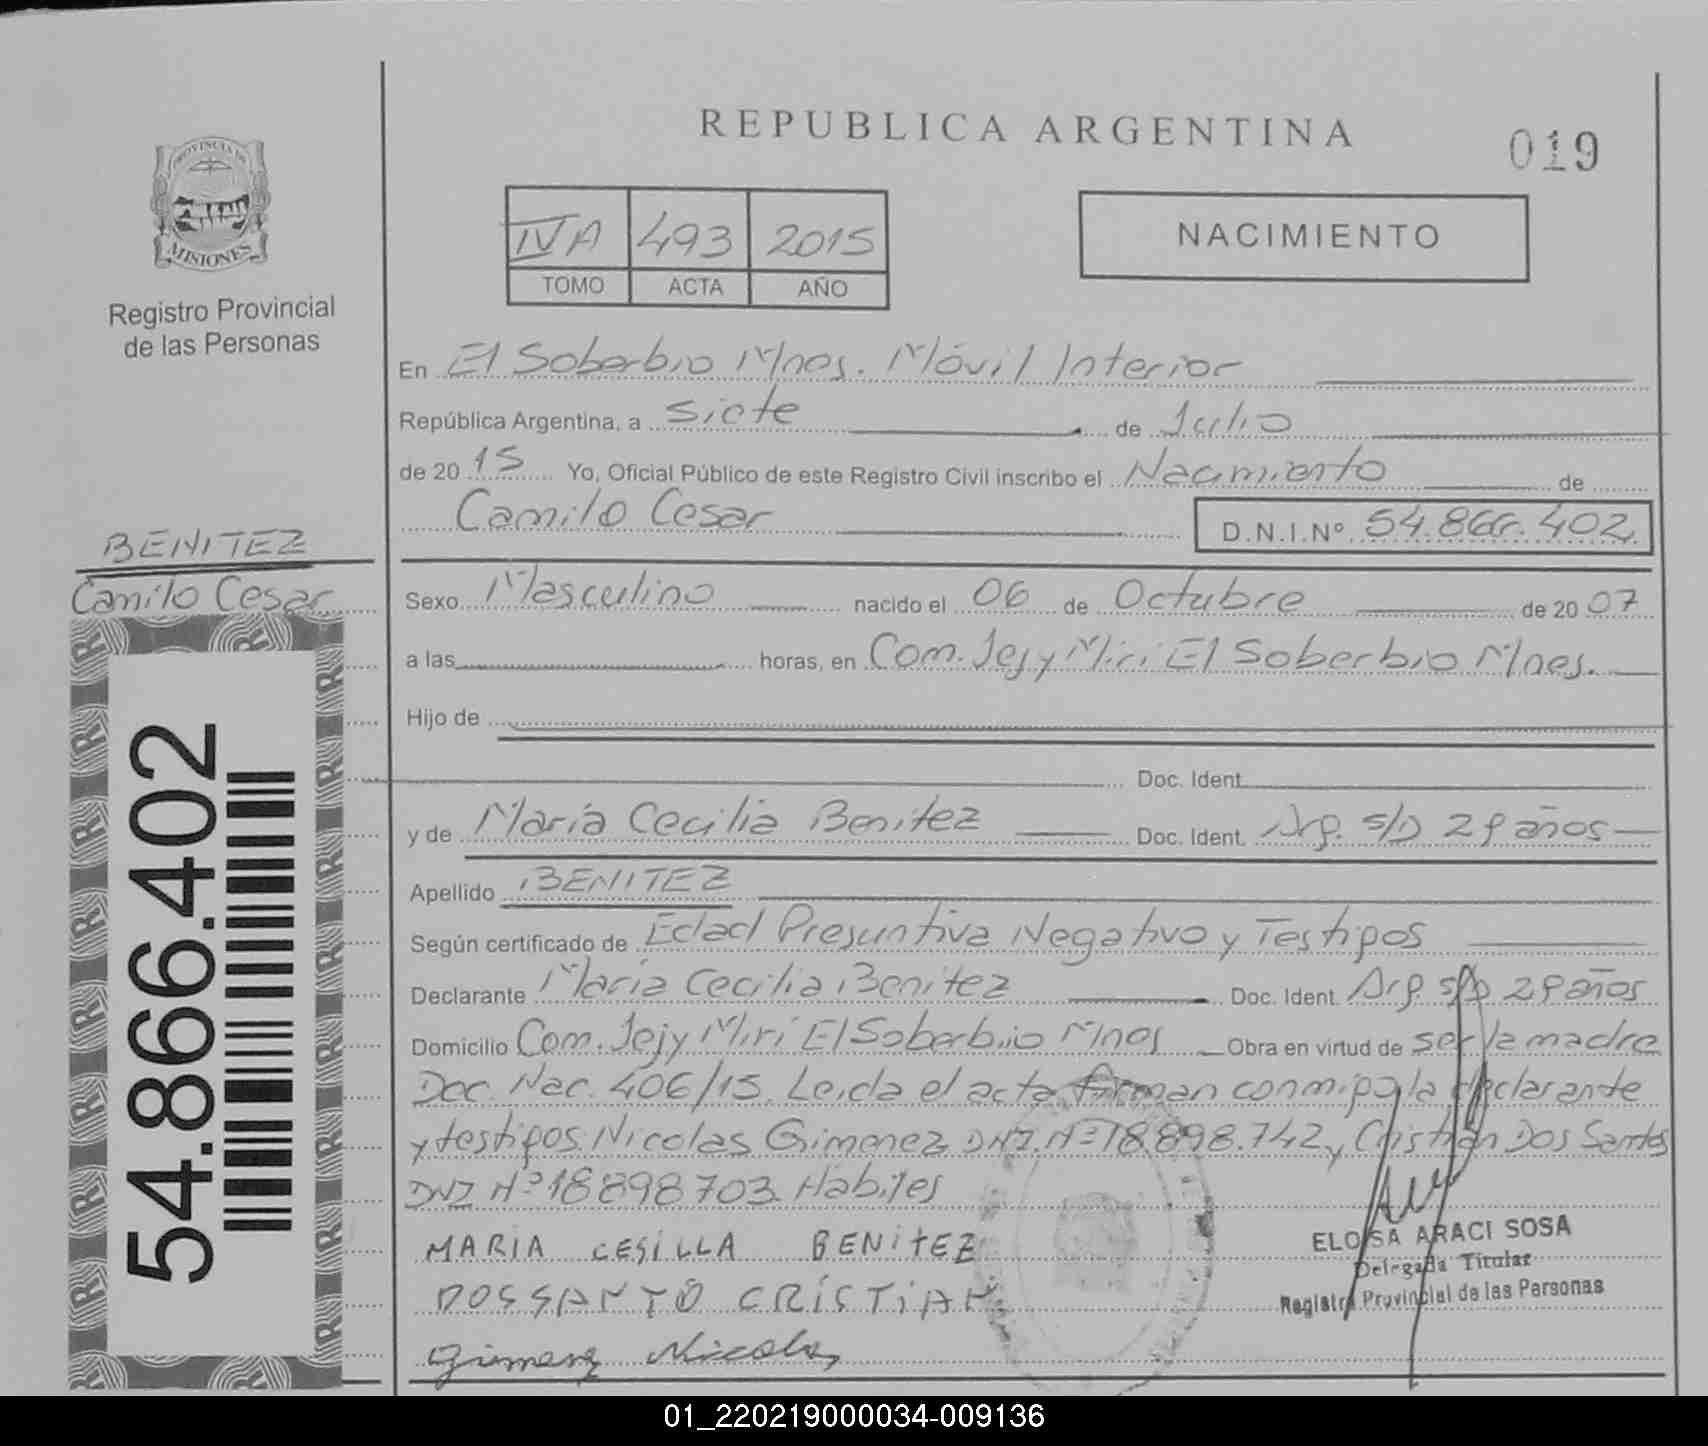 REPUBLICA ARGENTINA
019
PROVINCIA DE
MISIONES
Registro Provincial
de las Personas
IVA 493 2015
TOMO ACTA AÑO
NACIMIENTO
En El Soberbio Mnes. Móvil Interior
República Argentina, a Siete de Julio
de 20 15 Yo, Oficial Público de este Registro Civil inscribo el Nacimiento de
Camilo Cesar D.N.I.Nº 54.866.402
BENITEZ
Camilo Cesar
Sexo Masculino nacido el 06 de Octubre de 20 07
a las horas, en Com. Jejy Miri El Soberbio Mnes.
Hijo de
Doc. Ident.
y de María Cecilia Benitez Doc. Ident. Arg. s/D 29 años
Apellido BENITEZ
Según certificado de Edad Presuntiva Negativo y Testigos
Declarante María Cecilia Benitez Doc. Ident. Arg. s/D 29 años
Domicilio Com. Jejy Miri El Soberbio Mnes Obra en virtud de ser la madre
Doc. Nac. 406/15. Leida el acta firman conmigo la declarante
y testigos Nicolas Gimenez DNI. Nº 18.898.742 y Cristian Dos Santos
DNI Nº 18898703. Habiles
MARIA CESILLA BENITEZ
DOSSANTO CRISTIAN
Gimenez Nicolas
ELOISA ARACI SOSA
Delegada Titular
Registro Provincial de las Personas
54.866.402
01_220219000034-009136